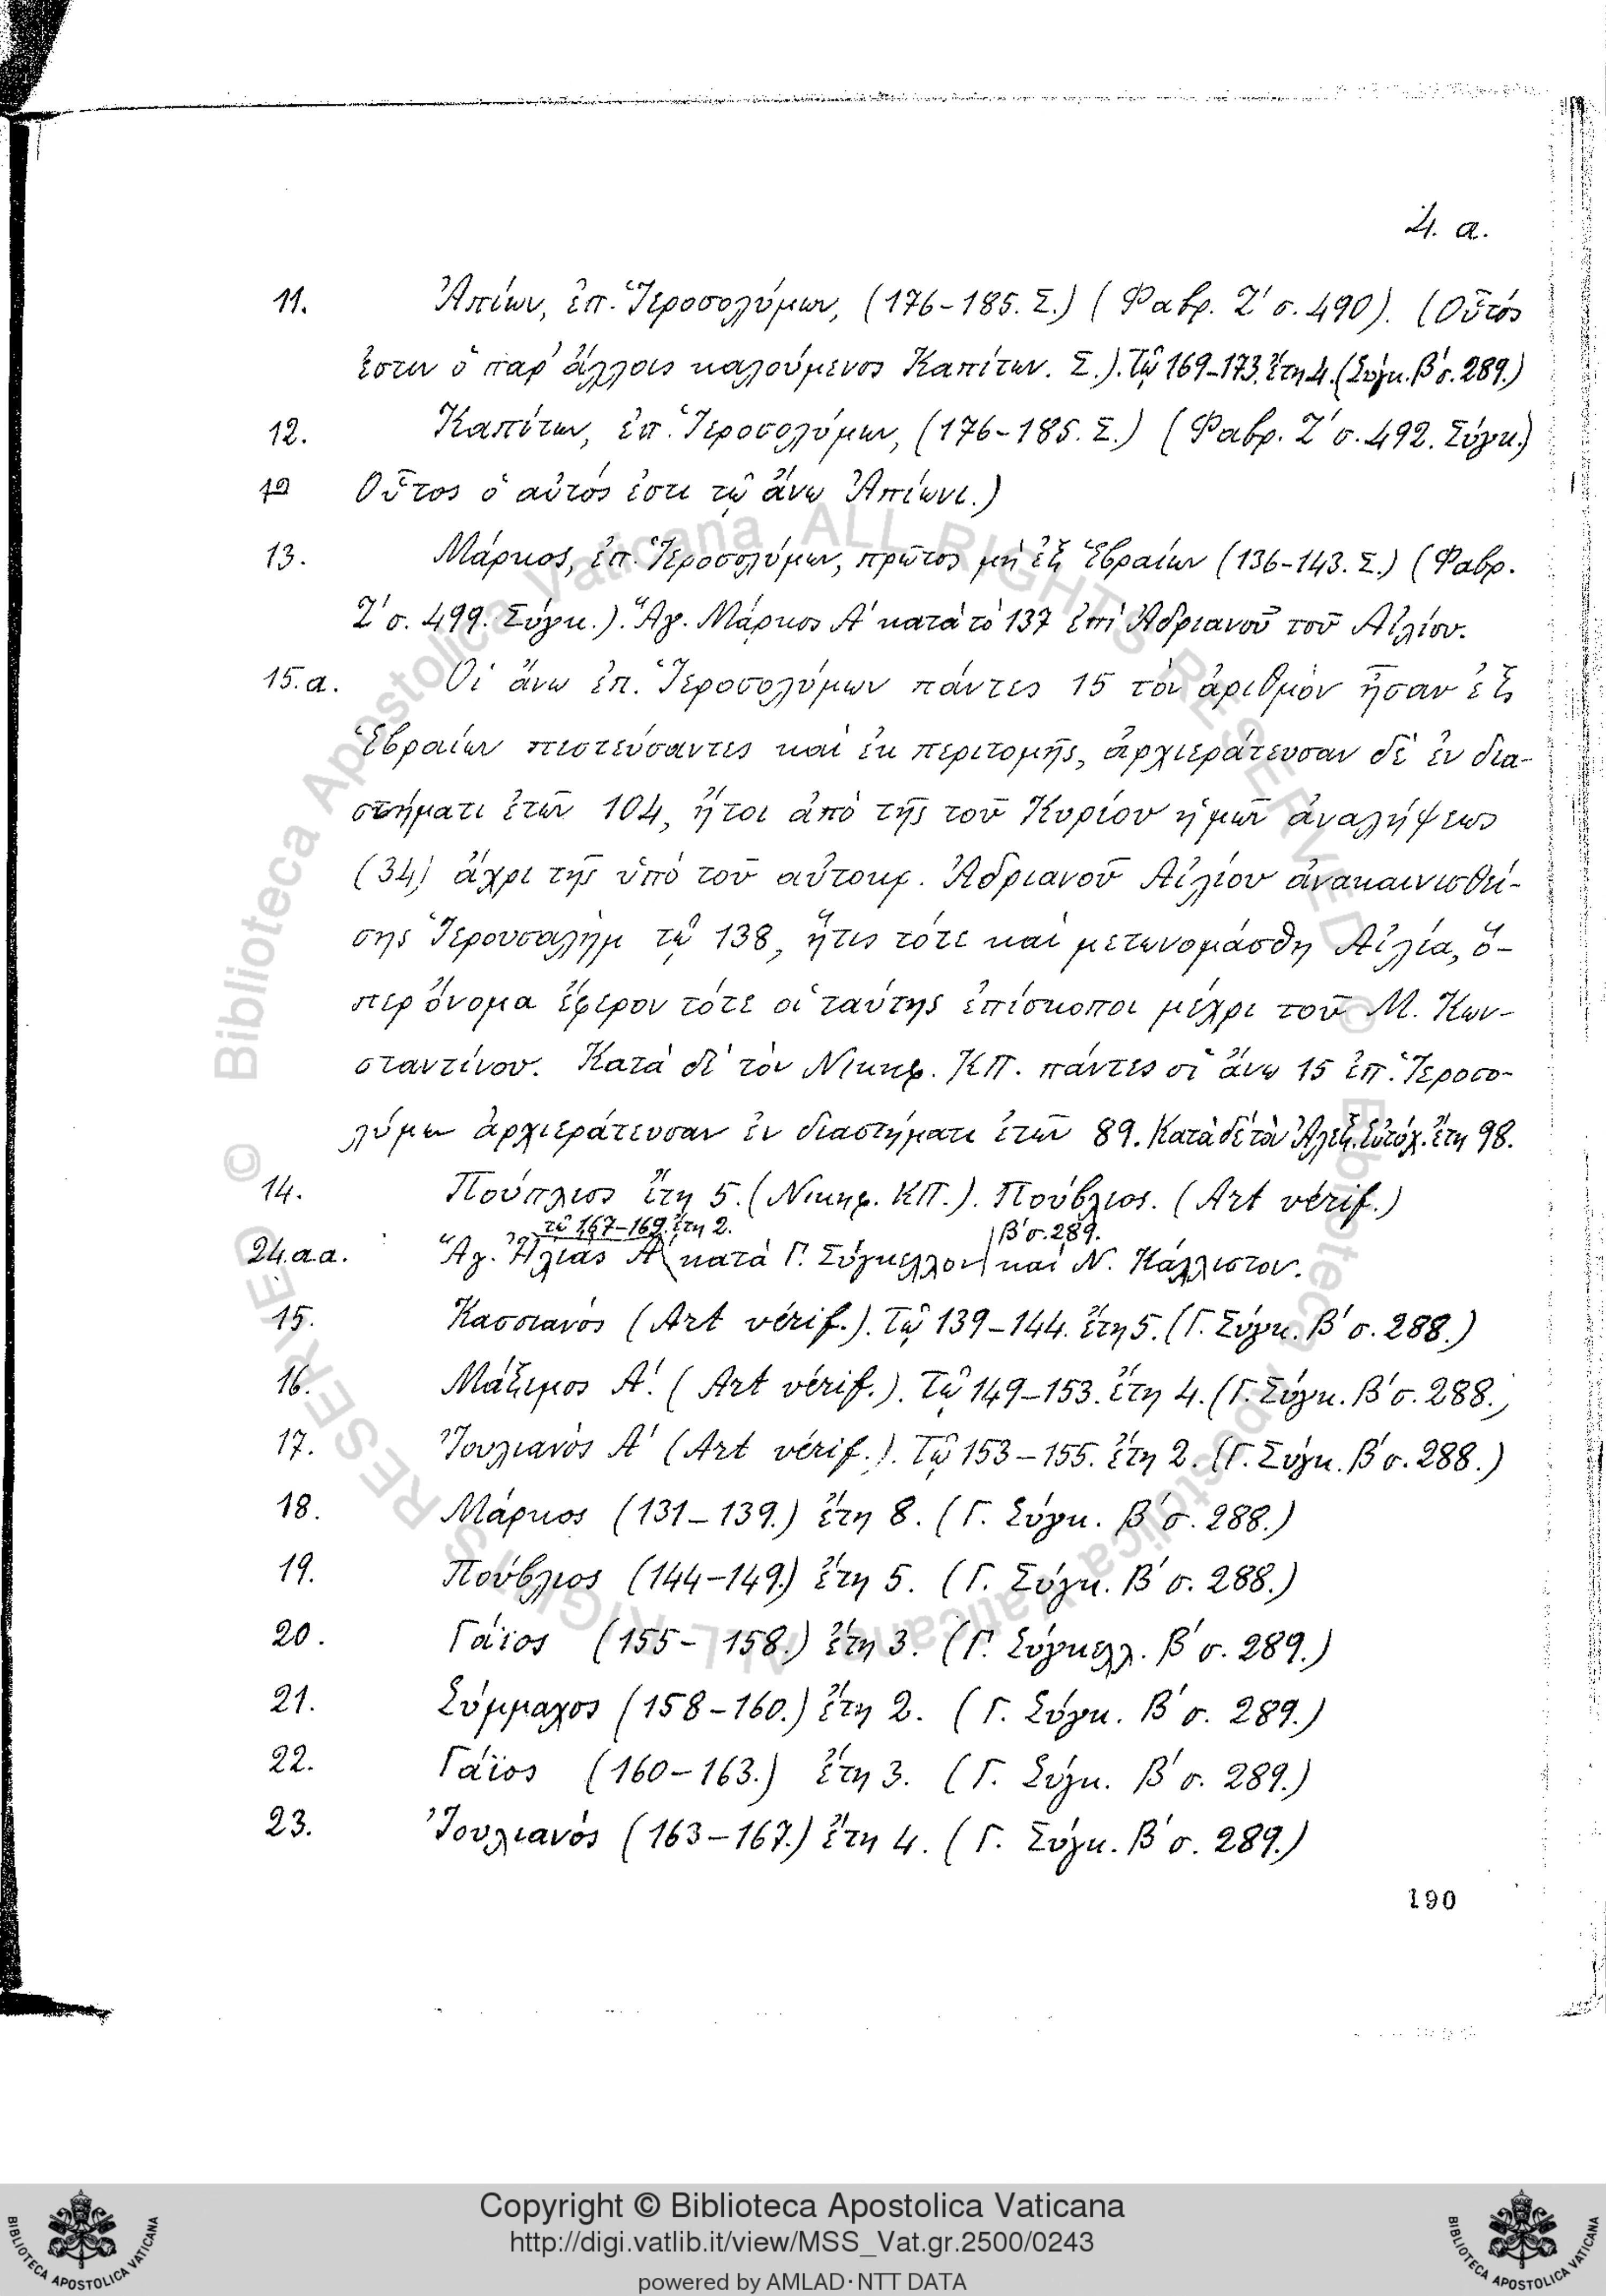 4. α.
11. Ἀπίων, ἐπ. Ἱεροσολύμων, (176-185. Σ.) (Φαβρ. Ζ´ σ. 490). (Οὗτός
ἐστιν ὁ παρ' ἄλλοις καλούμενος Καπίτων. Σ.). Τῷ 169-173. ἔτη 4. (Σύγκ. β´ σ. 289.)
12. Καπίτων, ἐπ. Ἱεροσολύμων, (176-185. Σ.) (Φαβρ. Ζ´ σ. 492. Σύγκ.)
Οὗτος ὁ αὐτός ἐστι τῷ ἄνω Ἀπίωνι.)
13. Μάρκος, ἐπ. Ἱεροσολύμων, πρῶτος μὴ ἐξ Ἑβραίων (136-143. Σ.) (Φαβρ.
Ζ´ σ. 499. Σύγκ.). Ἅγ. Μάρκος Α´ κατὰ τὸ 137 ἐπὶ Ἀδριανοῦ τοῦ Αἰλίου.
15. α. Οἱ ἄνω ἐπ. Ἱεροσολύμων πάντες 15 τὸν ἀριθμὸν ἦσαν ἐξ
Ἑβραίων πιστεύσαντες καὶ ἐκ περιτομῆς, ἀρχιεράτευσαν δὲ ἐν δια-
στήματι ἐτῶν 104, ἤτοι ἀπὸ τῆς τοῦ Κυρίου ἡμῶν ἀναλήψεως
(34) ἄχρι τῆς ὑπὸ τοῦ αὐτοκρ. Ἀδριανοῦ Αἰλίου ἀνακαινισθεί-
σης Ἱερουσαλὴμ τῷ 138, ἥτις τότε καὶ μετωνομάσθη Αἰλία, ὅ-
περ ὄνομα ἔφερον τότε οἱ ταύτης ἐπίσκοποι μέχρι τοῦ Μ. Κων-
σταντίνου. Κατὰ δὲ τὸν Νικηφ. ΚΠ. πάντες οἱ ἄνω 15 ἐπ. Ἱεροσο-
λύμων ἀρχιεράτευσαν ἐν διαστήματι ἐτῶν 89. Κατὰ δὲ τὸν Ἀλεξ. Εὐτύχ. ἔτη 98.
14. Πούπλιος ἔτη 5. (Νικηφ. ΚΠ.). Πούβλιος. (Art vérif.)
τῷ 167-169. ἔτη 2. β´ σ. 289.
24. α.α. Ἅγ. Ἠλίας Α´ κατὰ Γ. Σύγκελλον καὶ Ν. Κάλλιστον.
15. Κασσιανὸς (Art vérif.). Τῷ 139-144. ἔτη 5. (Γ. Σύγκ. β´ σ. 288.)
16. Μάξιμος Α´. (Art vérif.). Τῷ 149-153. ἔτη 4. (Γ. Σύγκ. β´ σ. 288.)
17. Ἰουλιανὸς Α´ (Art vérif.). Τῷ 153-155. ἔτη 2. (Γ. Σύγκ. β´ σ. 288.)
18. Μάρκος (131-139.) ἔτη 8. (Γ. Σύγκ. β´ σ. 288.)
19. Πούβλιος (144-149.) ἔτη 5. (Γ. Σύγκ. β´ σ. 288.)
20. Γάϊος (155-158.) ἔτη 3. (Γ. Σύγκελλ. β´ σ. 289.)
21. Σύμμαχος (158-160.) ἔτη 2. (Γ. Σύγκ. β´ σ. 289.)
22. Γάϊος (160-163.) ἔτη 3. (Γ. Σύγκ. β´ σ. 289.)
23. Ἰουλιανός (163-167.) ἔτη 4. (Γ. Σύγκ. β´ σ. 289.)
190
© Biblioteca Apostolica Vaticana ALL RIGHTS RESERVED © Biblioteca Apostolica Vaticana ALL RIGHTS RESERVED
Copyright © Biblioteca Apostolica Vaticana
http://digi.vatlib.it/view/MSS_Vat.gr.2500/0243
powered by AMLAD·NTT DATA
BIBLIOTECA APOSTOLICA VATICANA
BIBLIOTECA APOSTOLICA VATICANA